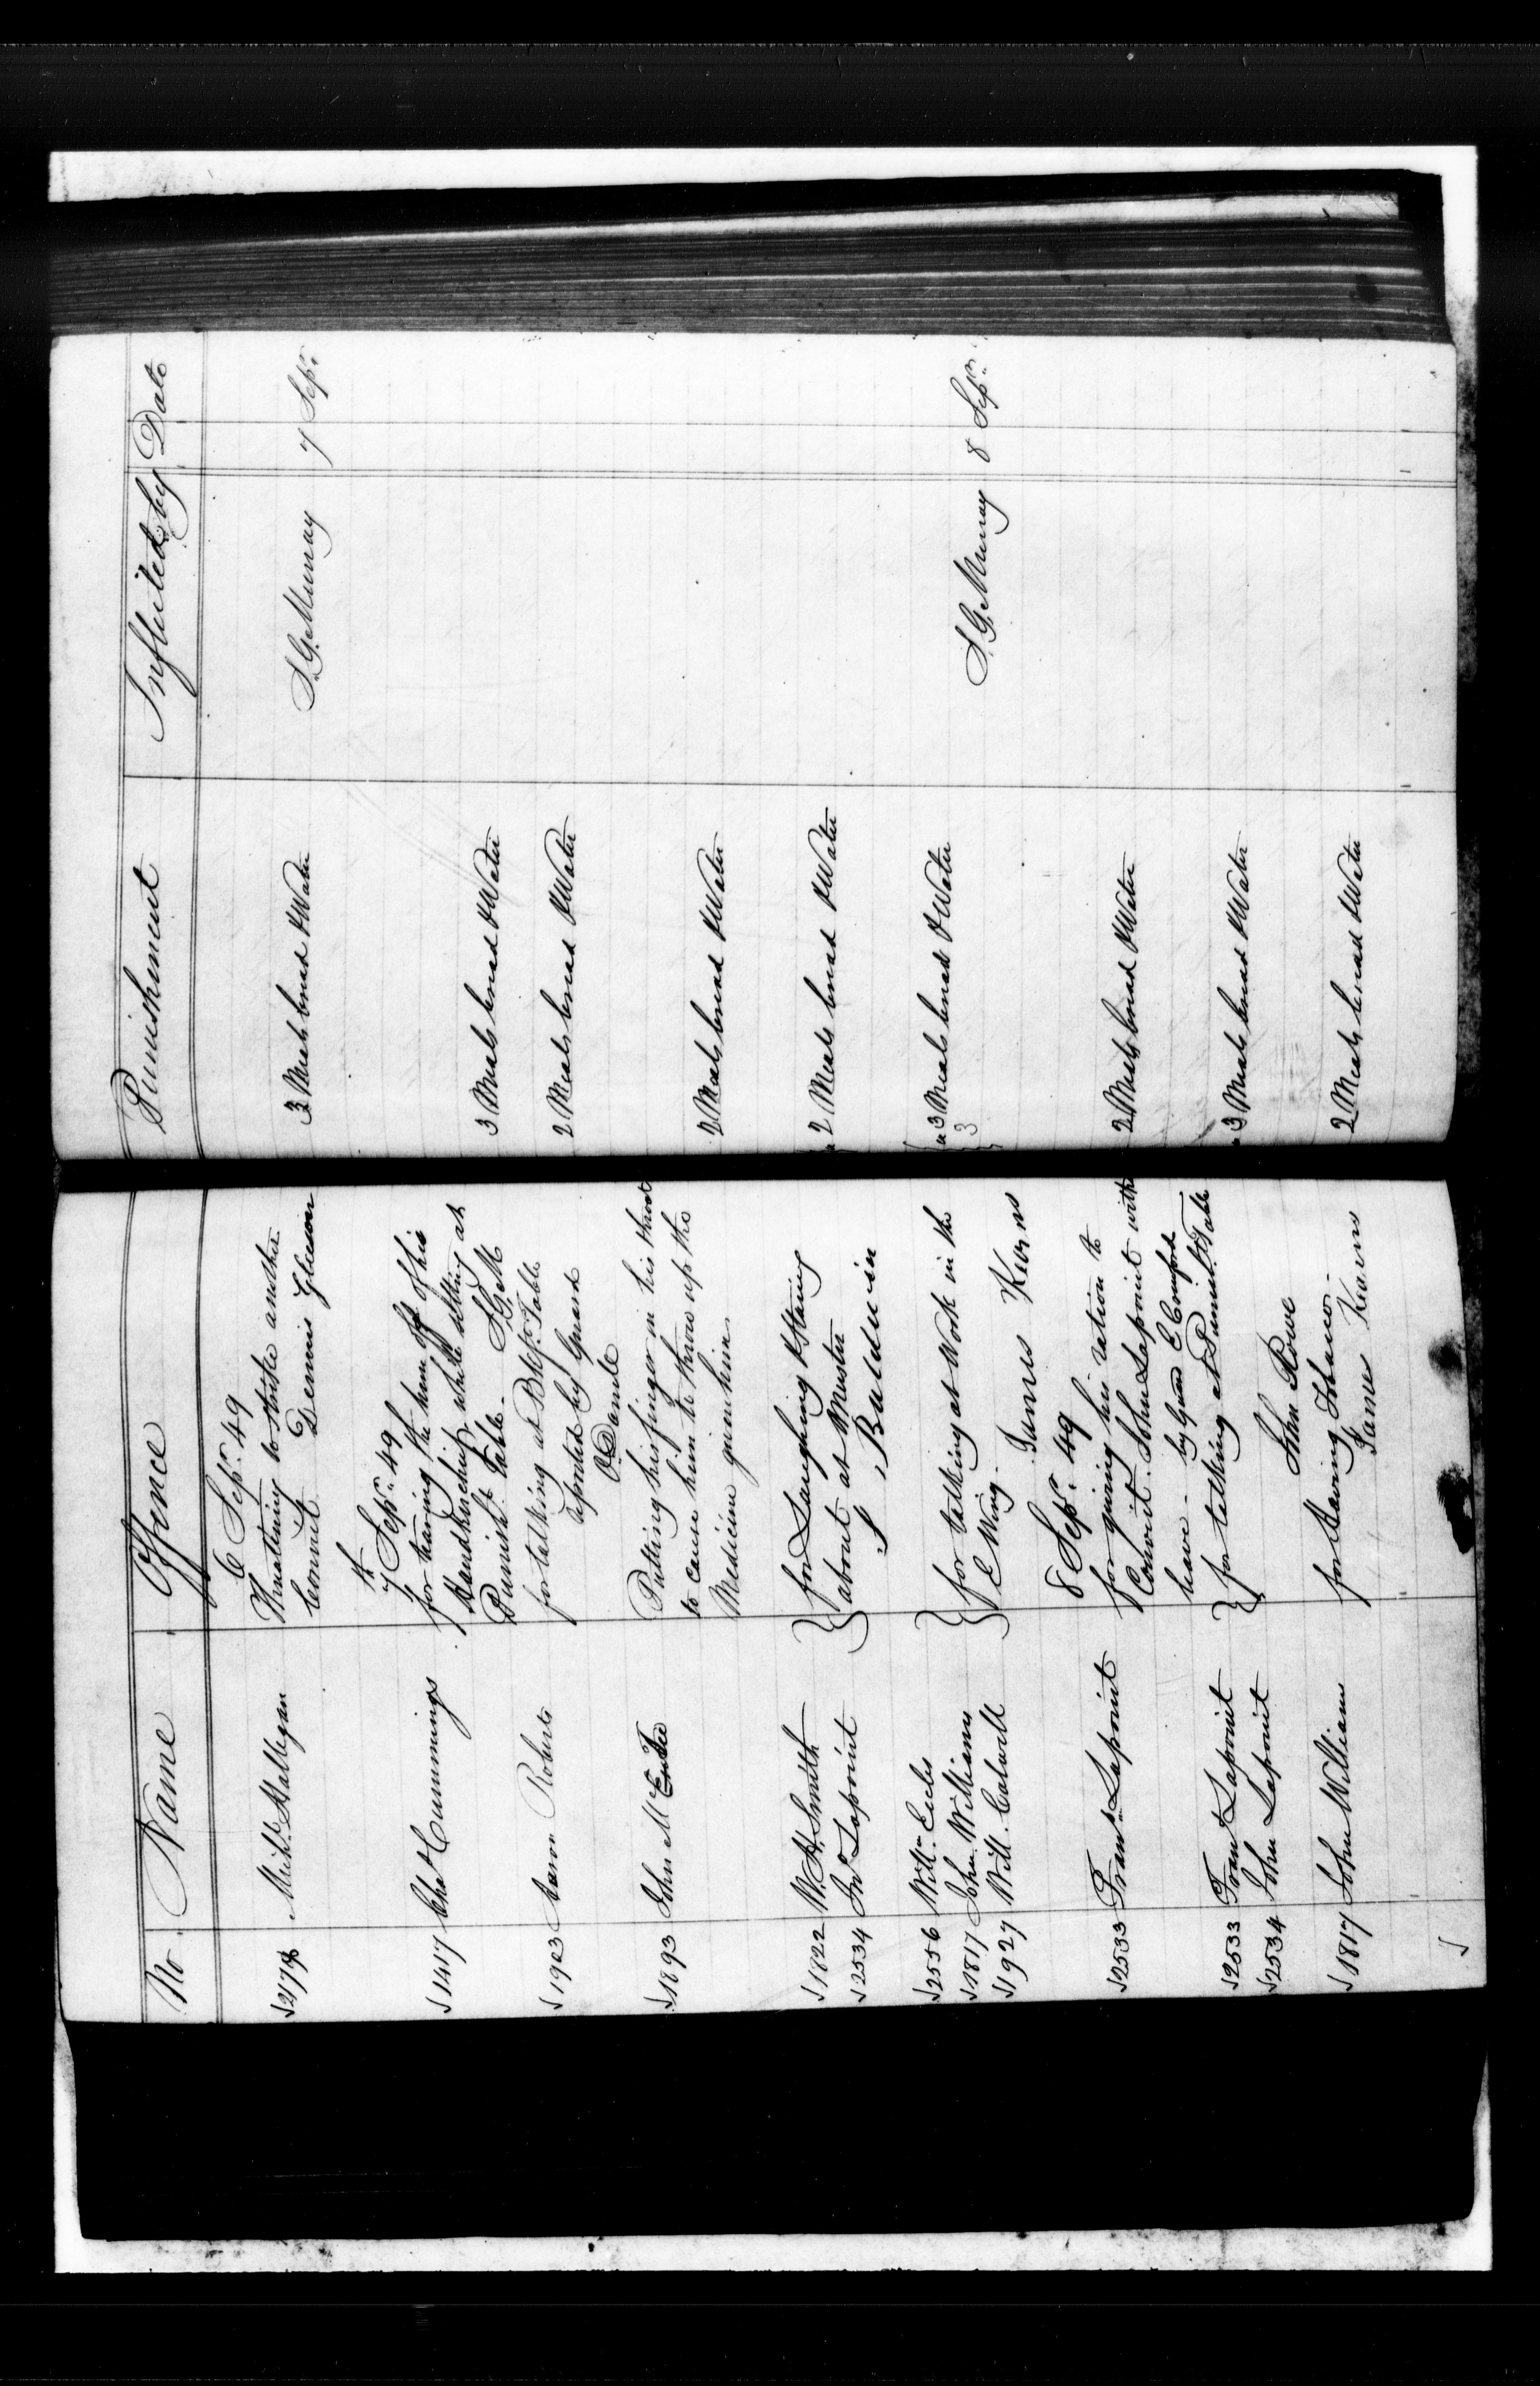 No Name Offence Punishment Inflicted by Date
6 Sepr. 49
2178 Michl. Hallegan Threatening to strike another 3 Meals bread & Water S. G. Murray 7 Sepr.
Convict Dennis Gleeson
7th Sepr. 49
1417 Chas Cummings for having the hem off of his
Handkerchief while sitting at
Punisht. Table. S.G.M 3 Meals bread & Water
1923 Aaron Roberts for talking at Bkft. Table 2 Meals bread & Water
reported by Guard
O. Damele
1893 John McEntee Putting his finger in his throat
to cause him to throw up the 2 Meals bread & Water
Medicine given him.
1822 W. H. Smith } for Laughing & Staring
2534 Jno Lapoint } about at Muster a 2 Meals bread & Water
S. Baldwin
2556 Willm Eccles } for talking at Work in the a 3 Meals bread & Water
1817 John Williams } E Wing. 3 S. G. Murray 8 Sepr.
1927 Will. Calwell } James Kearns
8 Sepr. 49
2533 Frans. Lapoint for giving his ration to 2 Meals bread & Water
Convict John Lapoint without
leave. by Guard E Comfort
2533 Frans Lapoint } for talking at Punisht. Table a 3 Meals bread & Water
2534 John Lapoint }
John Rowe
1817 John Williams for Having Tobacco. 2 Meals bread & Water
James Kearns